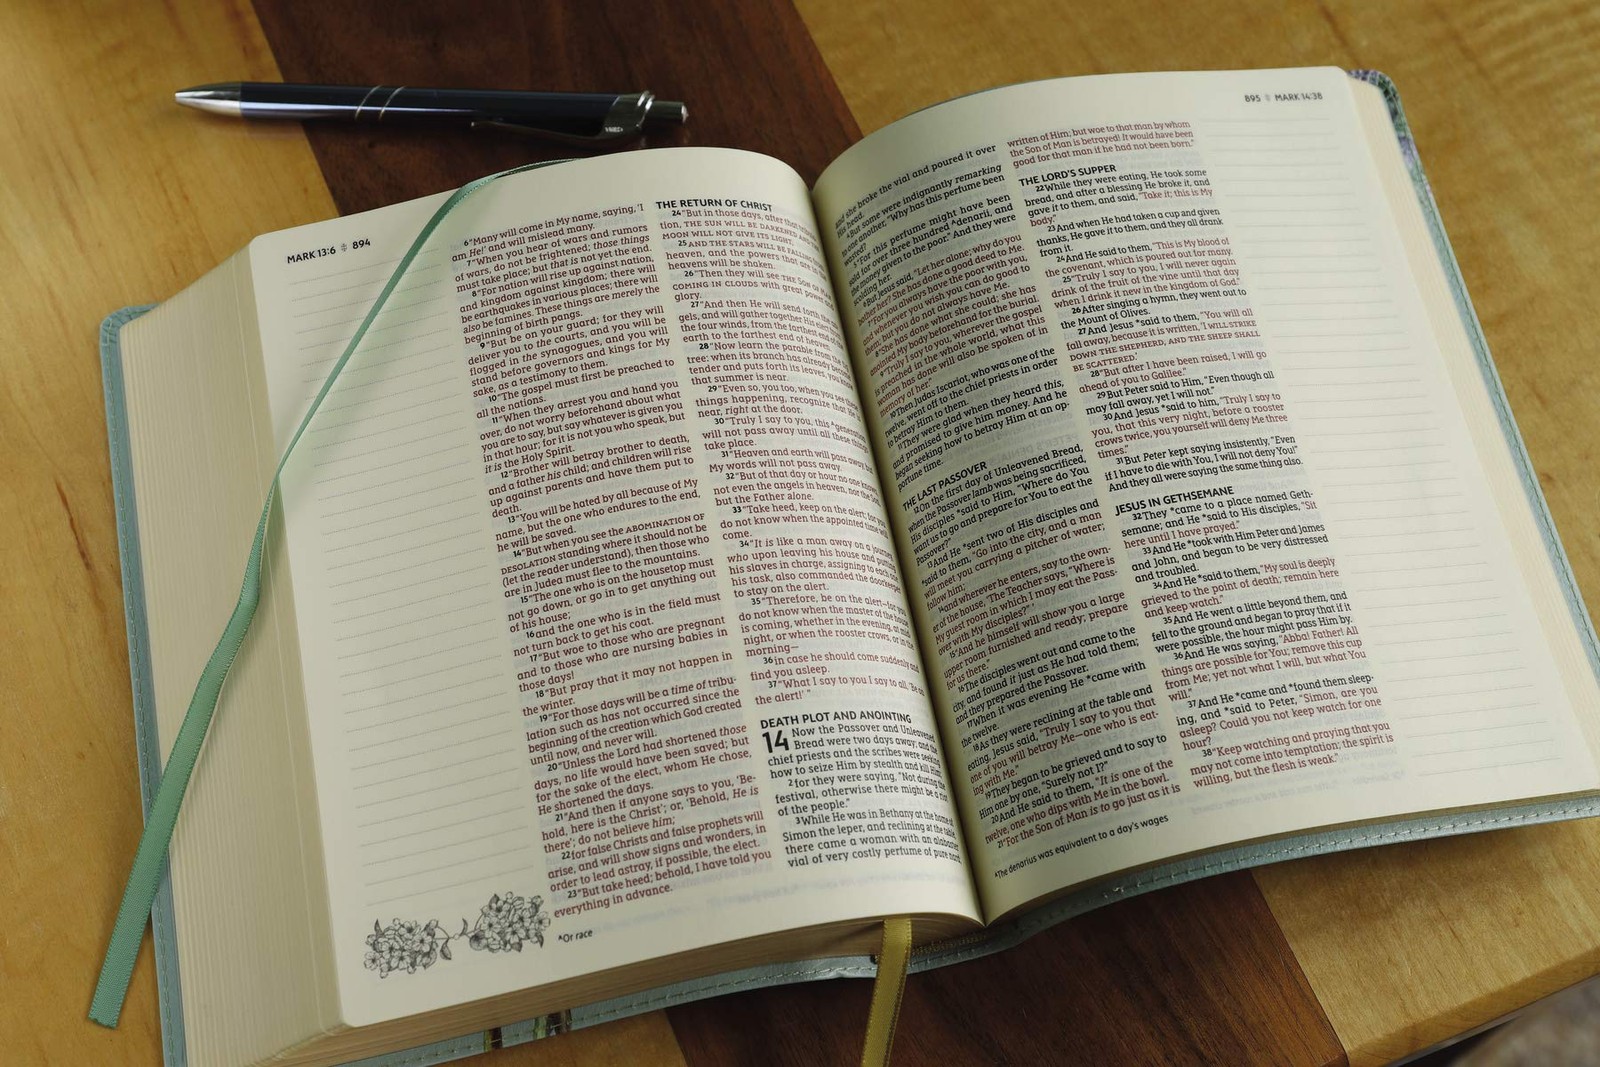 MARK 13:6 894
6"Many will come in My name, saying, 'I
am He!' and will mislead many.
7"When you hear of wars and rumors
of wars, do not be frightened; those things
must take place; but that is not yet the end.
8"For nation will rise up against nation,
and kingdom against kingdom; there will
be earthquakes in various places; there will
also be famines. These things are merely the
beginning of birth pangs.
9"But be on your guard; for they will
deliver you to the courts, and you will be
flogged in the synagogues, and you will
stand before governors and kings for My
sake, as a testimony to them.
10"The gospel must first be preached to
all the nations.
11"When they arrest you and hand you
over, do not worry beforehand about what
you are to say, but say whatever is given you
in that hour; for it is not you who speak, but
it is the Holy Spirit.
12"Brother will betray brother to death,
and a father his child; and children will rise
up against parents and have them put to
death.
13"You will be hated by all because of My
name, but the one who endures to the end,
he will be saved.
14"But when you see the ABOMINATION OF
DESOLATION standing where it should not be
(let the reader understand), then those who
are in Judea must flee to the mountains.
15"The one who is on the housetop must
not go down, or go in to get anything out
of his house;
16and the one who is in the field must
not turn back to get his coat.
17"But woe to those who are pregnant
and to those who are nursing babies in
those days!
18"But pray that it may not happen in
the winter.
19"For those days will be a time of tribu-
lation such as has not occurred since the
beginning of the creation which God created
until now, and never will.
20"Unless the Lord had shortened those
days, no life would have been saved; but
for the sake of the elect, whom He chose,
He shortened the days.
21"And then if anyone says to you, 'Be-
hold, here is the Christ'; or, 'Behold, He is
there'; do not believe him;
22for false Christs and false prophets will
arise, and will show signs and wonders, in
order to lead astray, if possible, the elect.
23"But take heed; behold, I have told you
everything in advance.
THE RETURN OF CHRIST
24"But in those days, after that
tion, THE SUN WILL BE DARKENED AND THE
MOON WILL NOT GIVE ITS LIGHT,
25AND THE STARS WILL BE FALLING
heaven, and the powers that are in
heavens will be shaken.
26"Then they will see THE SON OF MAN
COMING IN CLOUDS with great power and
glory.
27"And then He will send forth the
gels, and will gather together His elect
the four winds, from the farthest end of
earth to the farthest end of heaven.
28"Now learn the parable from the
tree: when its branch has already become
tender and puts forth its leaves, you know
that summer is near.
29"Even so, you too, when you see these
things happening, recognize that He is
near, right at the door.
30"Truly I say to you, this ᴬgeneration
will not pass away until all these things
take place.
31"Heaven and earth will pass away, but
My words will not pass away.
32"But of that day or hour no one knows,
not even the angels in heaven, nor the Son,
but the Father alone.
33"Take heed, keep on the alert; for you
do not know when the appointed time will
come.
34"It is like a man away on a journey,
who upon leaving his house and putting
his slaves in charge, assigning to each one
his task, also commanded the doorkeeper
to stay on the alert.
35"Therefore, be on the alert—for you
do not know when the master of the house
is coming, whether in the evening, at mid-
night, or when the rooster crows, or in the
morning—
36in case he should come suddenly and
find you asleep.
37"What I say to you I say to all, 'Be on
the alert!' "
DEATH PLOT AND ANOINTING
14 Now the Passover and Unleavened
Bread were two days away; and the
chief priests and the scribes were seeking
how to seize Him by stealth and kill Him;
2for they were saying, "Not during the
festival, otherwise there might be a riot
of the people."
3While He was in Bethany at the home of
Simon the leper, and reclining at the table,
there came a woman with an alabaster
vial of very costly perfume of pure nard
ᴬOr race
895 MARK 14:38
and she broke the vial and poured it over
His head.
4But some were indignantly remarking
to one another, "Why has this perfume been
wasted?
5"For this perfume might have been
sold for over three hundred ᴬdenarii, and
the money given to the poor." And they were
scolding her.
6But Jesus said, "Let her alone; why do you
bother her? She has done a good deed to Me.
7"For you always have the poor with you,
and whenever you wish you can do good to
them; but you do not always have Me.
8"She has done what she could; she has
anointed My body beforehand for the burial.
9"Truly I say to you, wherever the gospel
is preached in the whole world, what this
woman has done will also be spoken of in
memory of her."
10Then Judas Iscariot, who was one of the
twelve, went off to the chief priests in order
to betray Him to them.
11They were glad when they heard this,
and promised to give him money. And he
began seeking how to betray Him at an op-
portune time.
THE LAST PASSOVER
12On the first day of Unleavened Bread,
when the Passover lamb was being sacrificed,
His disciples *said to Him, "Where do You
want us to go and prepare for You to eat the
Passover?"
13And He *sent two of His disciples and
*said to them, "Go into the city, and a man
will meet you carrying a pitcher of water;
follow him;
14and wherever he enters, say to the own-
er of the house, 'The Teacher says, "Where is
My guest room in which I may eat the Pass-
over with My disciples?" '
15"And he himself will show you a large
upper room furnished and ready; prepare
for us there."
16The disciples went out and came to the
city, and found it just as He had told them;
and they prepared the Passover.
17When it was evening He *came with
the twelve.
18As they were reclining at the table and
eating, Jesus said, "Truly I say to you that
one of you will betray Me—one who is eat-
ing with Me."
19They began to be grieved and to say to
Him one by one, "Surely not I?"
20And He said to them, "It is one of the
twelve, one who dips with Me in the bowl.
21"For the Son of Man is to go just as it is
written of Him; but woe to that man by whom
the Son of Man is betrayed! It would have been
good for that man if he had not been born."
THE LORD'S SUPPER
22While they were eating, He took some
bread, and after a blessing He broke it, and
gave it to them, and said, "Take it; this is My
body."
23And when He had taken a cup and given
thanks, He gave it to them, and they all drank
from it.
24And He said to them, "This is My blood of
the covenant, which is poured out for many.
25"Truly I say to you, I will never again
drink of the fruit of the vine until that day
when I drink it new in the kingdom of God."
26After singing a hymn, they went out to
the Mount of Olives.
27And Jesus *said to them, "You will all
fall away, because it is written, 'I WILL STRIKE
DOWN THE SHEPHERD, AND THE SHEEP SHALL
BE SCATTERED.'
28"But after I have been raised, I will go
ahead of you to Galilee."
29But Peter said to Him, "Even though all
may fall away, yet I will not."
30And Jesus *said to him, "Truly I say to
you, that this very night, before a rooster
crows twice, you yourself will deny Me three
times."
31But Peter kept saying insistently, "Even
if I have to die with You, I will not deny You!"
And they all were saying the same thing also.
JESUS IN GETHSEMANE
32They *came to a place named Geth-
semane; and He *said to His disciples, "Sit
here until I have prayed."
33And He *took with Him Peter and James
and John, and began to be very distressed
and troubled.
34And He *said to them, "My soul is deeply
grieved to the point of death; remain here
and keep watch."
35And He went a little beyond them, and
fell to the ground and began to pray that if it
were possible, the hour might pass Him by.
36And He was saying, "Abba! Father! All
things are possible for You; remove this cup
from Me; yet not what I will, but what You
will."
37And He *came and *found them sleep-
ing, and *said to Peter, "Simon, are you
asleep? Could you not keep watch for one
hour?
38"Keep watching and praying that you
may not come into temptation; the spirit is
willing, but the flesh is weak."
ᴬThe denarius was equivalent to a day's wages